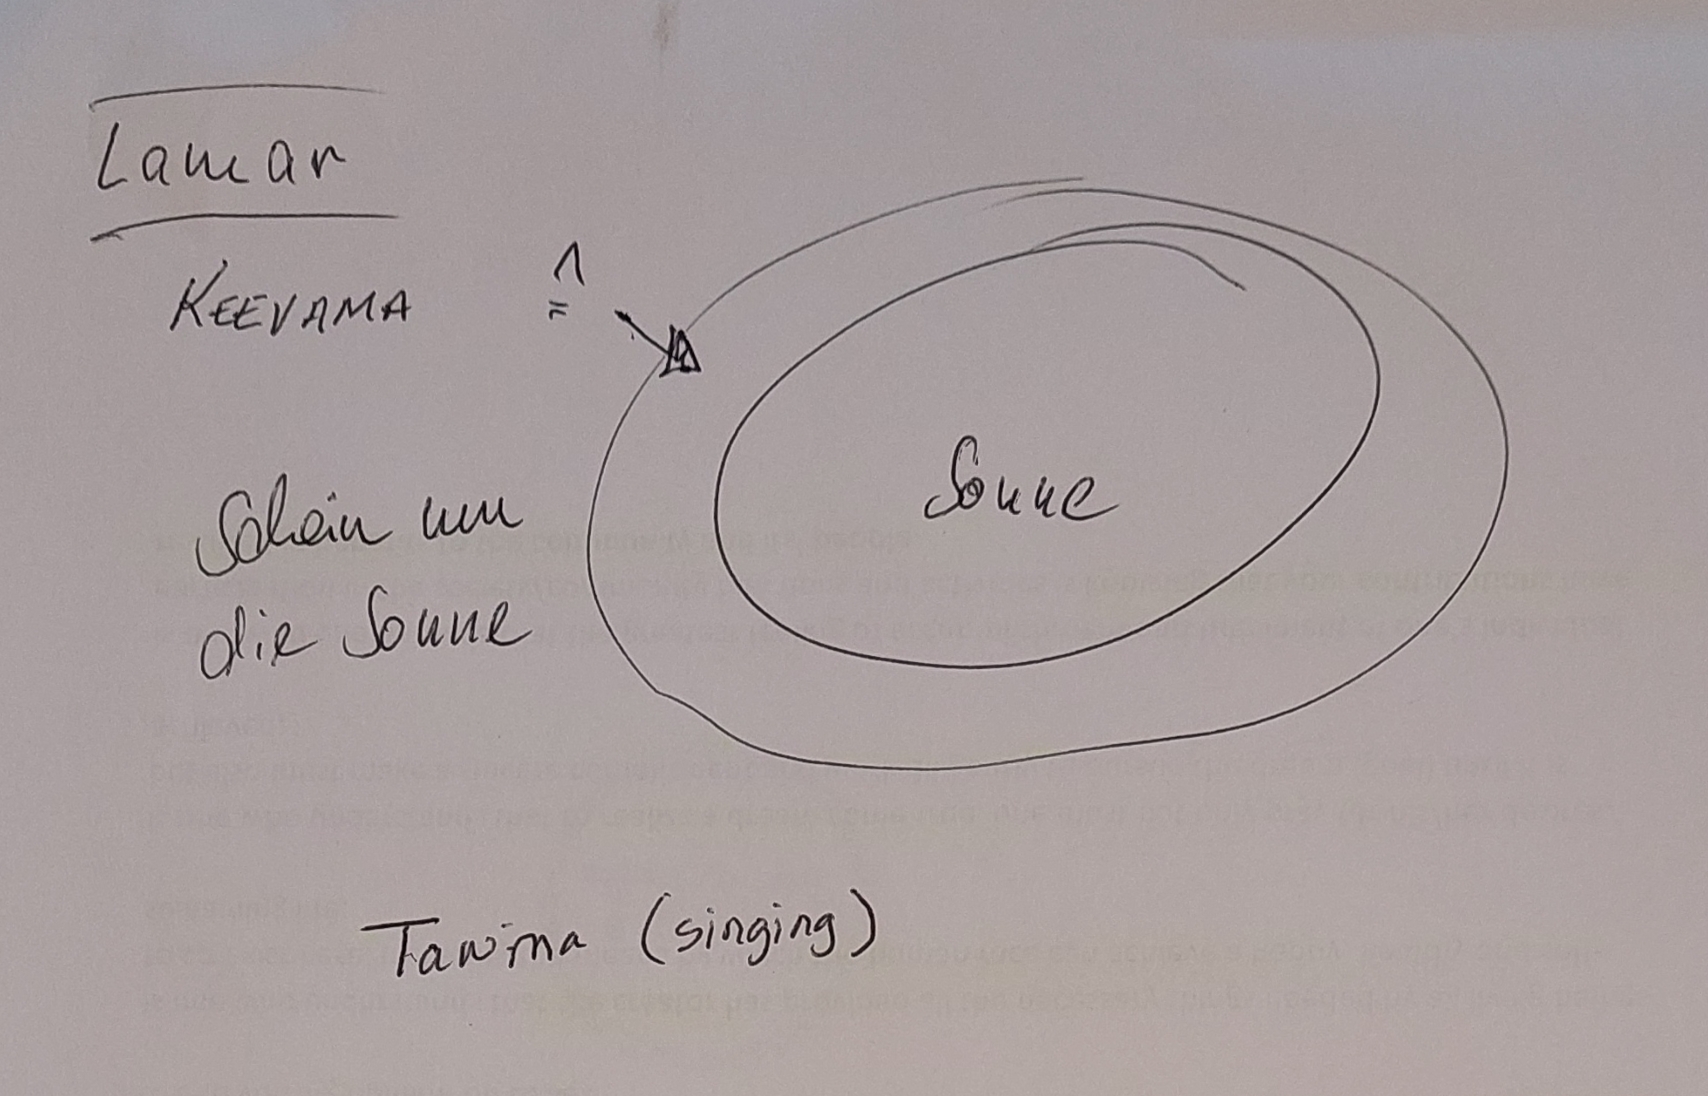 Lamar
KEEVAMA ≙
Sonne
Schein um
die Sonne
Tanima (singing)